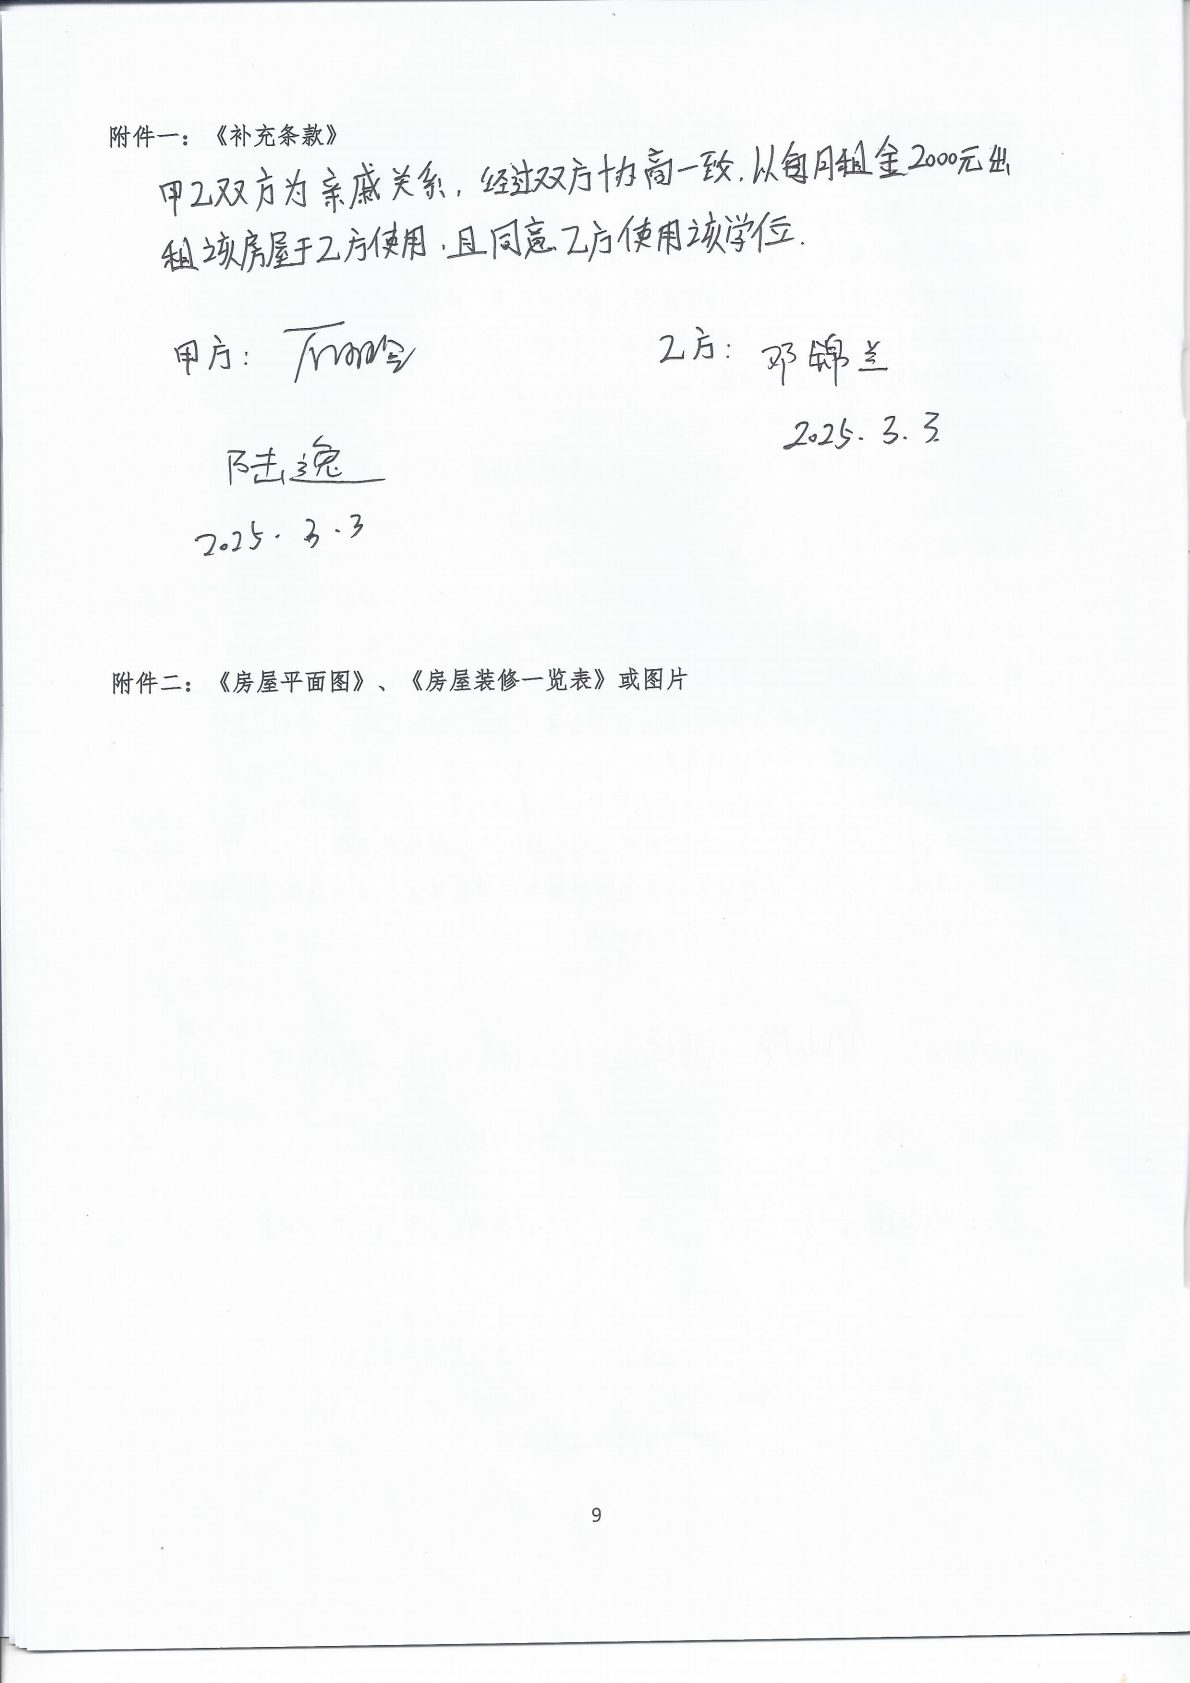 附件一：《补充条款》
甲乙双方为亲戚关系，经过双方协商一致，以每月租金2000元出
租该房屋于乙方使用，且同意乙方使用该学位.
甲方：
乙方：邓锦兰
2025.3.3
陆逸
2025.3.3
附件二：《房屋平面图》、《房屋装修一览表》或图片
9